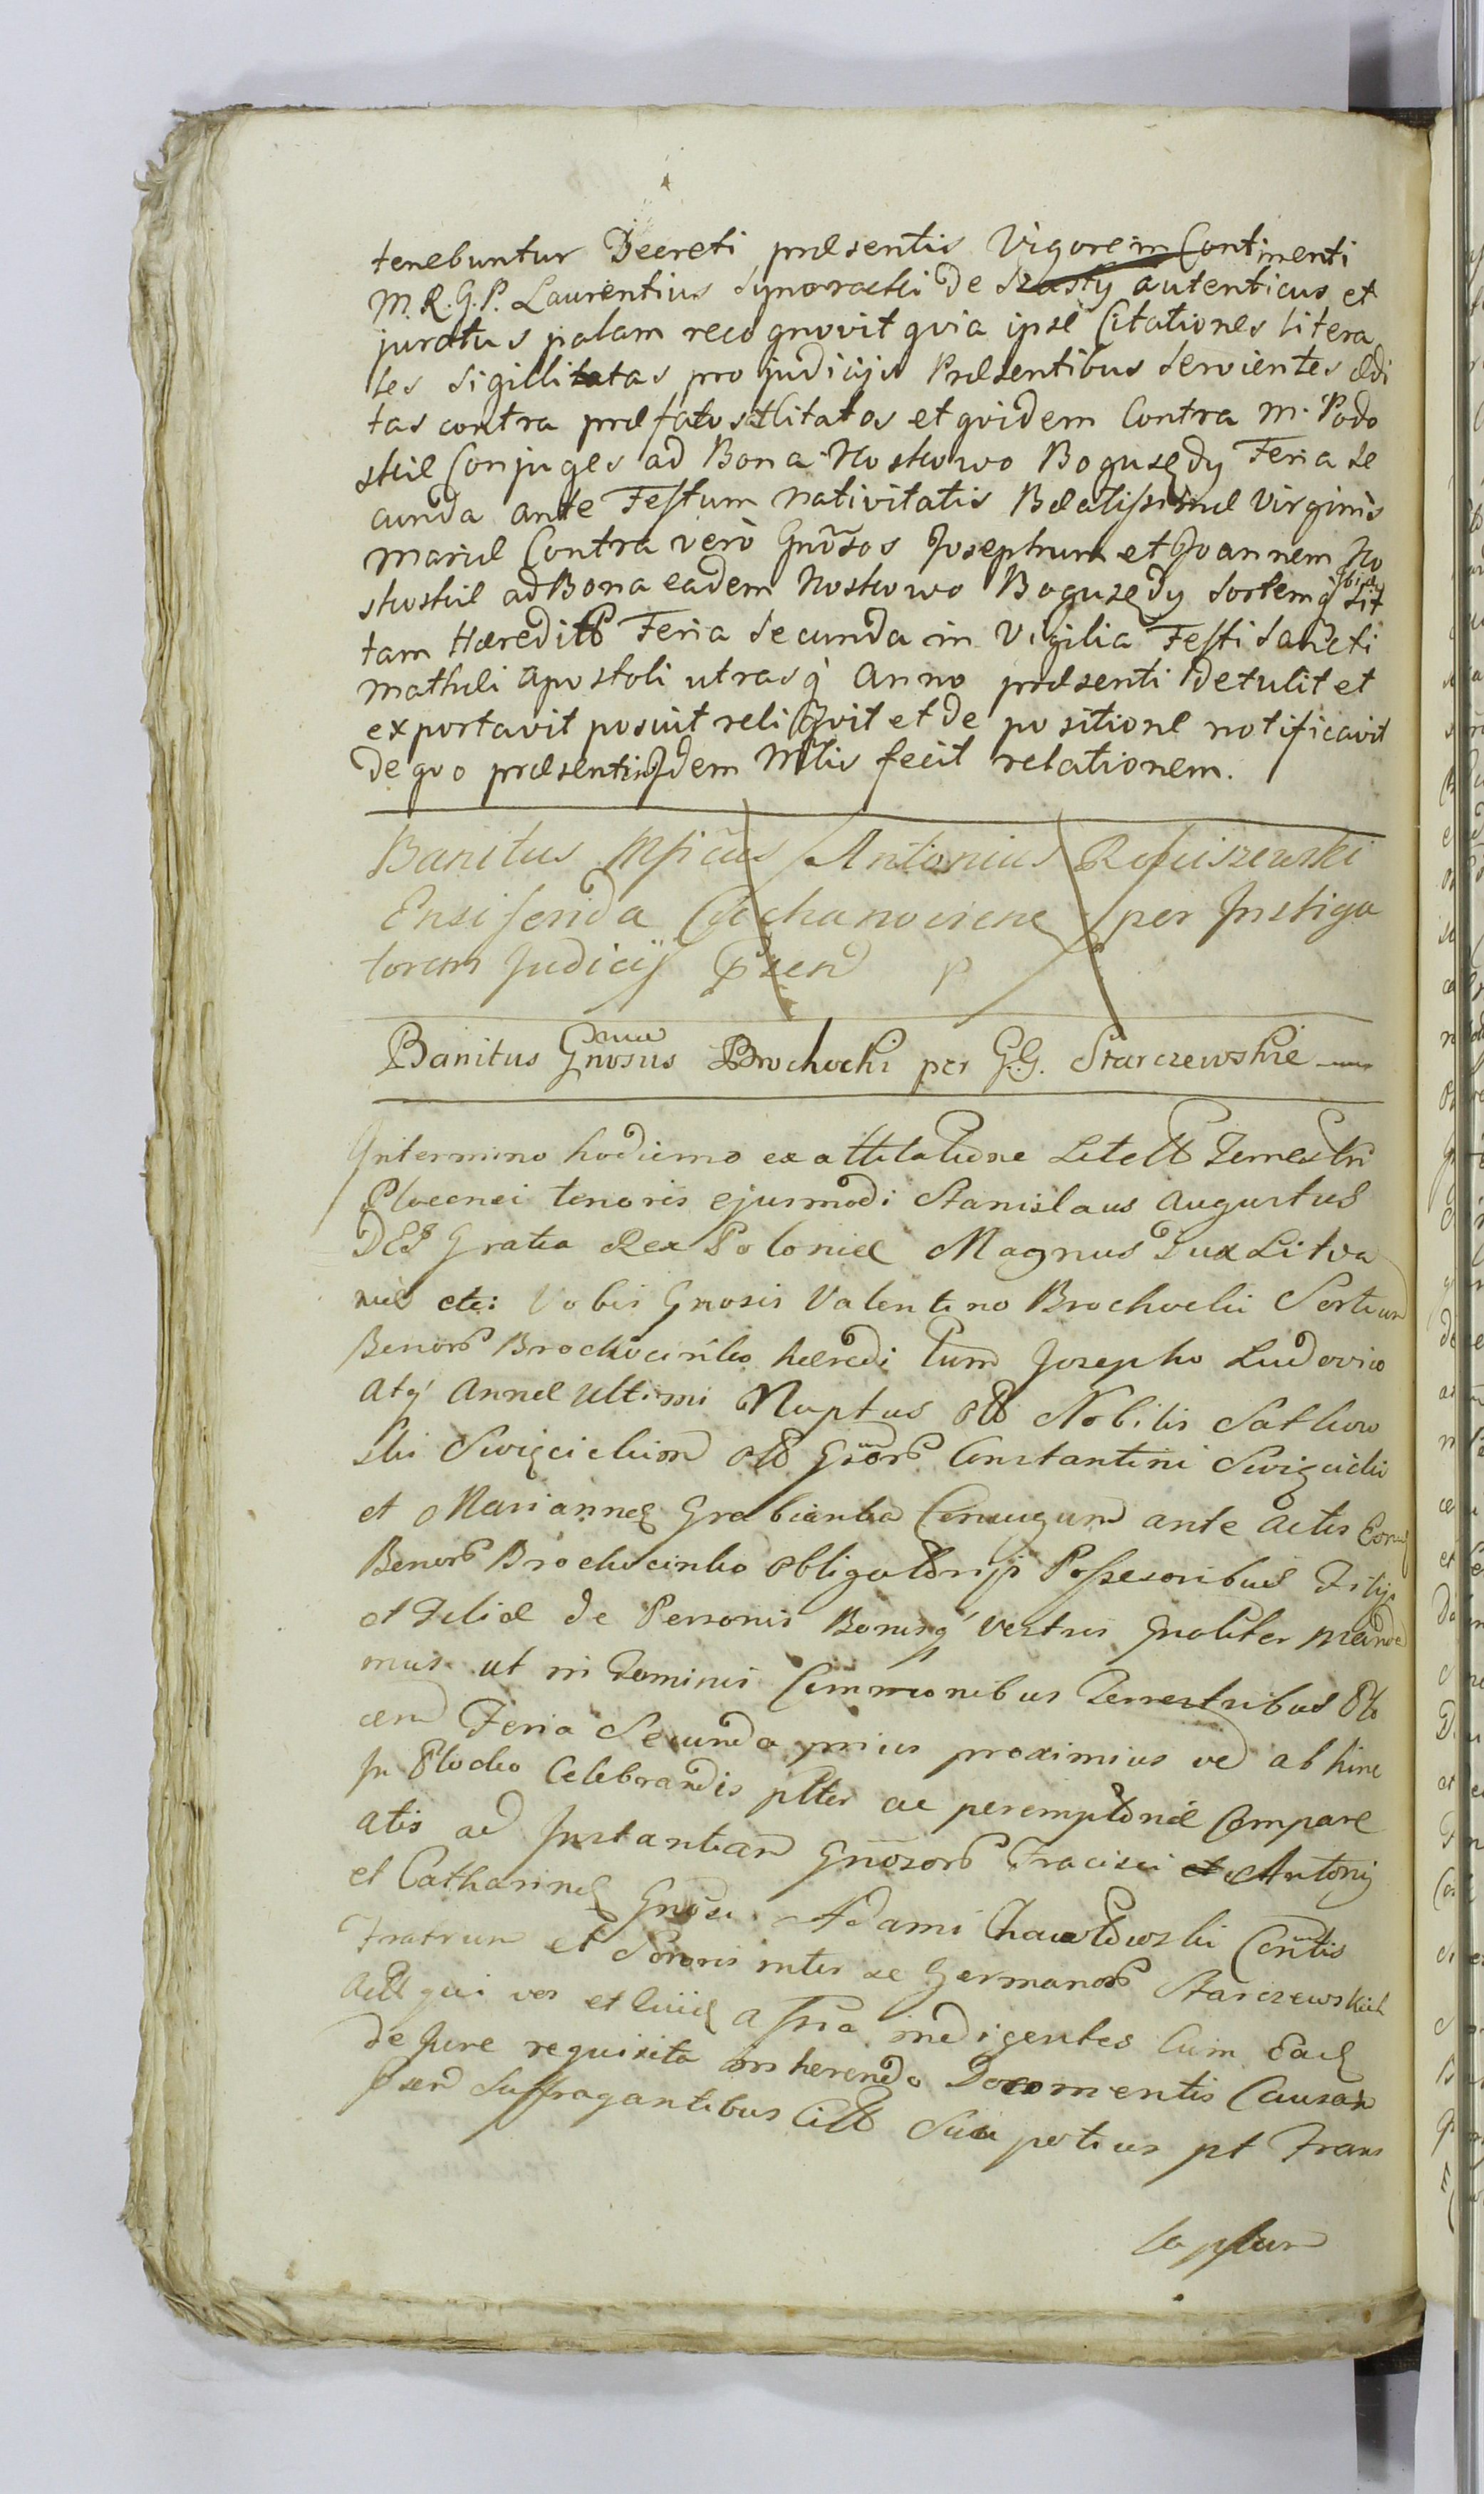 tenebuntur Decreti præsentis Vigore in Continenti
M. R. G. P. Laurentius Synoracki de Szasty autenticus et
juratus palam recognovit qvia ipse Citationes litera
les sigillitatas pro judicijs Præsentibus servientes ædi
tas contra præfatos Citatos et qvidem Contra M. Podo
skie Conjuges ad Bona Noskowo Bogusędy Feria se
cunda ante Festum Nativitatis Beatissimæ Virginis
Mariæ Contra verò Gnõsos Josephum et Joannem No
skoskie ad Bona eadem Noskowo Bogusędy sortemq́ ibid sit
tam Hæredit Feria secunda in Vigilia Festi Sancti
Mathæi Apostoli utrasq́ Anno præsenti detulit et
exportavit posuit reliqvit et de positione notificavit
de qvo præsentis Idem Mtis fecit relationem.
Banitus Mficus Antonius Rosciszewski
Ensiferida Ciechanoviene per Instiga
torem Judicij Psen P
Banitus Gnosus Brochocki per G.G. Starczewskie
In termino hodierno ex attitatione Terrestri
Plocensi tenoris ejusmodi Stanislaus Augustus
DEI Gratia Rex Poloniæ Magnus Dux Litva
niæ etc: Vobis Gnosis Valentino Brochocki Sortium
Bonor Brochocinko hæredi tum Josepho Ludovico
atq́ Annæ Ultimi Nuptus Nobilis Satkow
ski Swięcickim Gñor Constantini Swięcicki
et Mariannæ Grabianka Conjugum ante actis Eorund
Bonor Brochocinko obligatorijs Possesoribus Filijs
et Filiæ de Personis Bonisq́ vestris Gnaliter manda
mus ut in Terminis Comunibus Terrestribus Plo
cen Feria Secunda prius proximius ab hinc
In Plocko Celebrandis plter ac peremptorie Compare
atis ad Instantiam Gnõsor Fracisci et Antonij
et Catharinæ Gnõsi Adami Chawłowski Contis
Fratrum et Sororis inter se Germanor Starczewskich
Act qui vos et a Tria indigentes Cum Eaq
de Jure requisita inherendo Documentis Causam
psen Suffragantibus Citt Sua potius pt Trans
lapsum